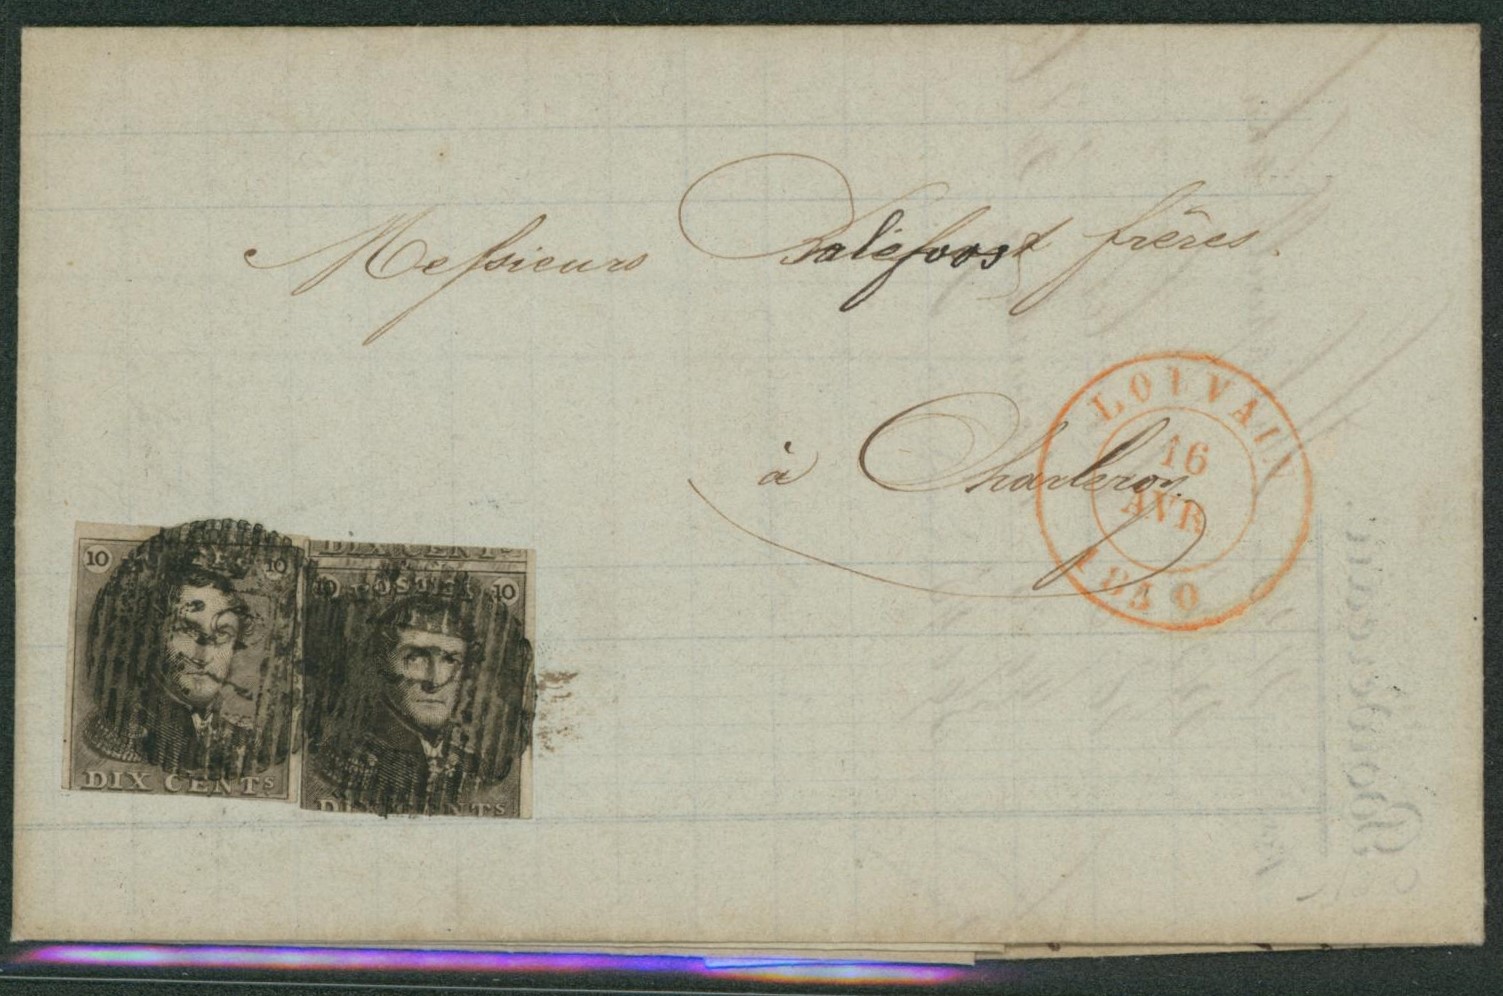 Messieurs Baléfoost frères
à Charleroy
LOUVAIN
16
AVR
1850
10 POSTES 10
DIX CENTS
DIX CENTS
10 POSTES 10
DIX CENTS